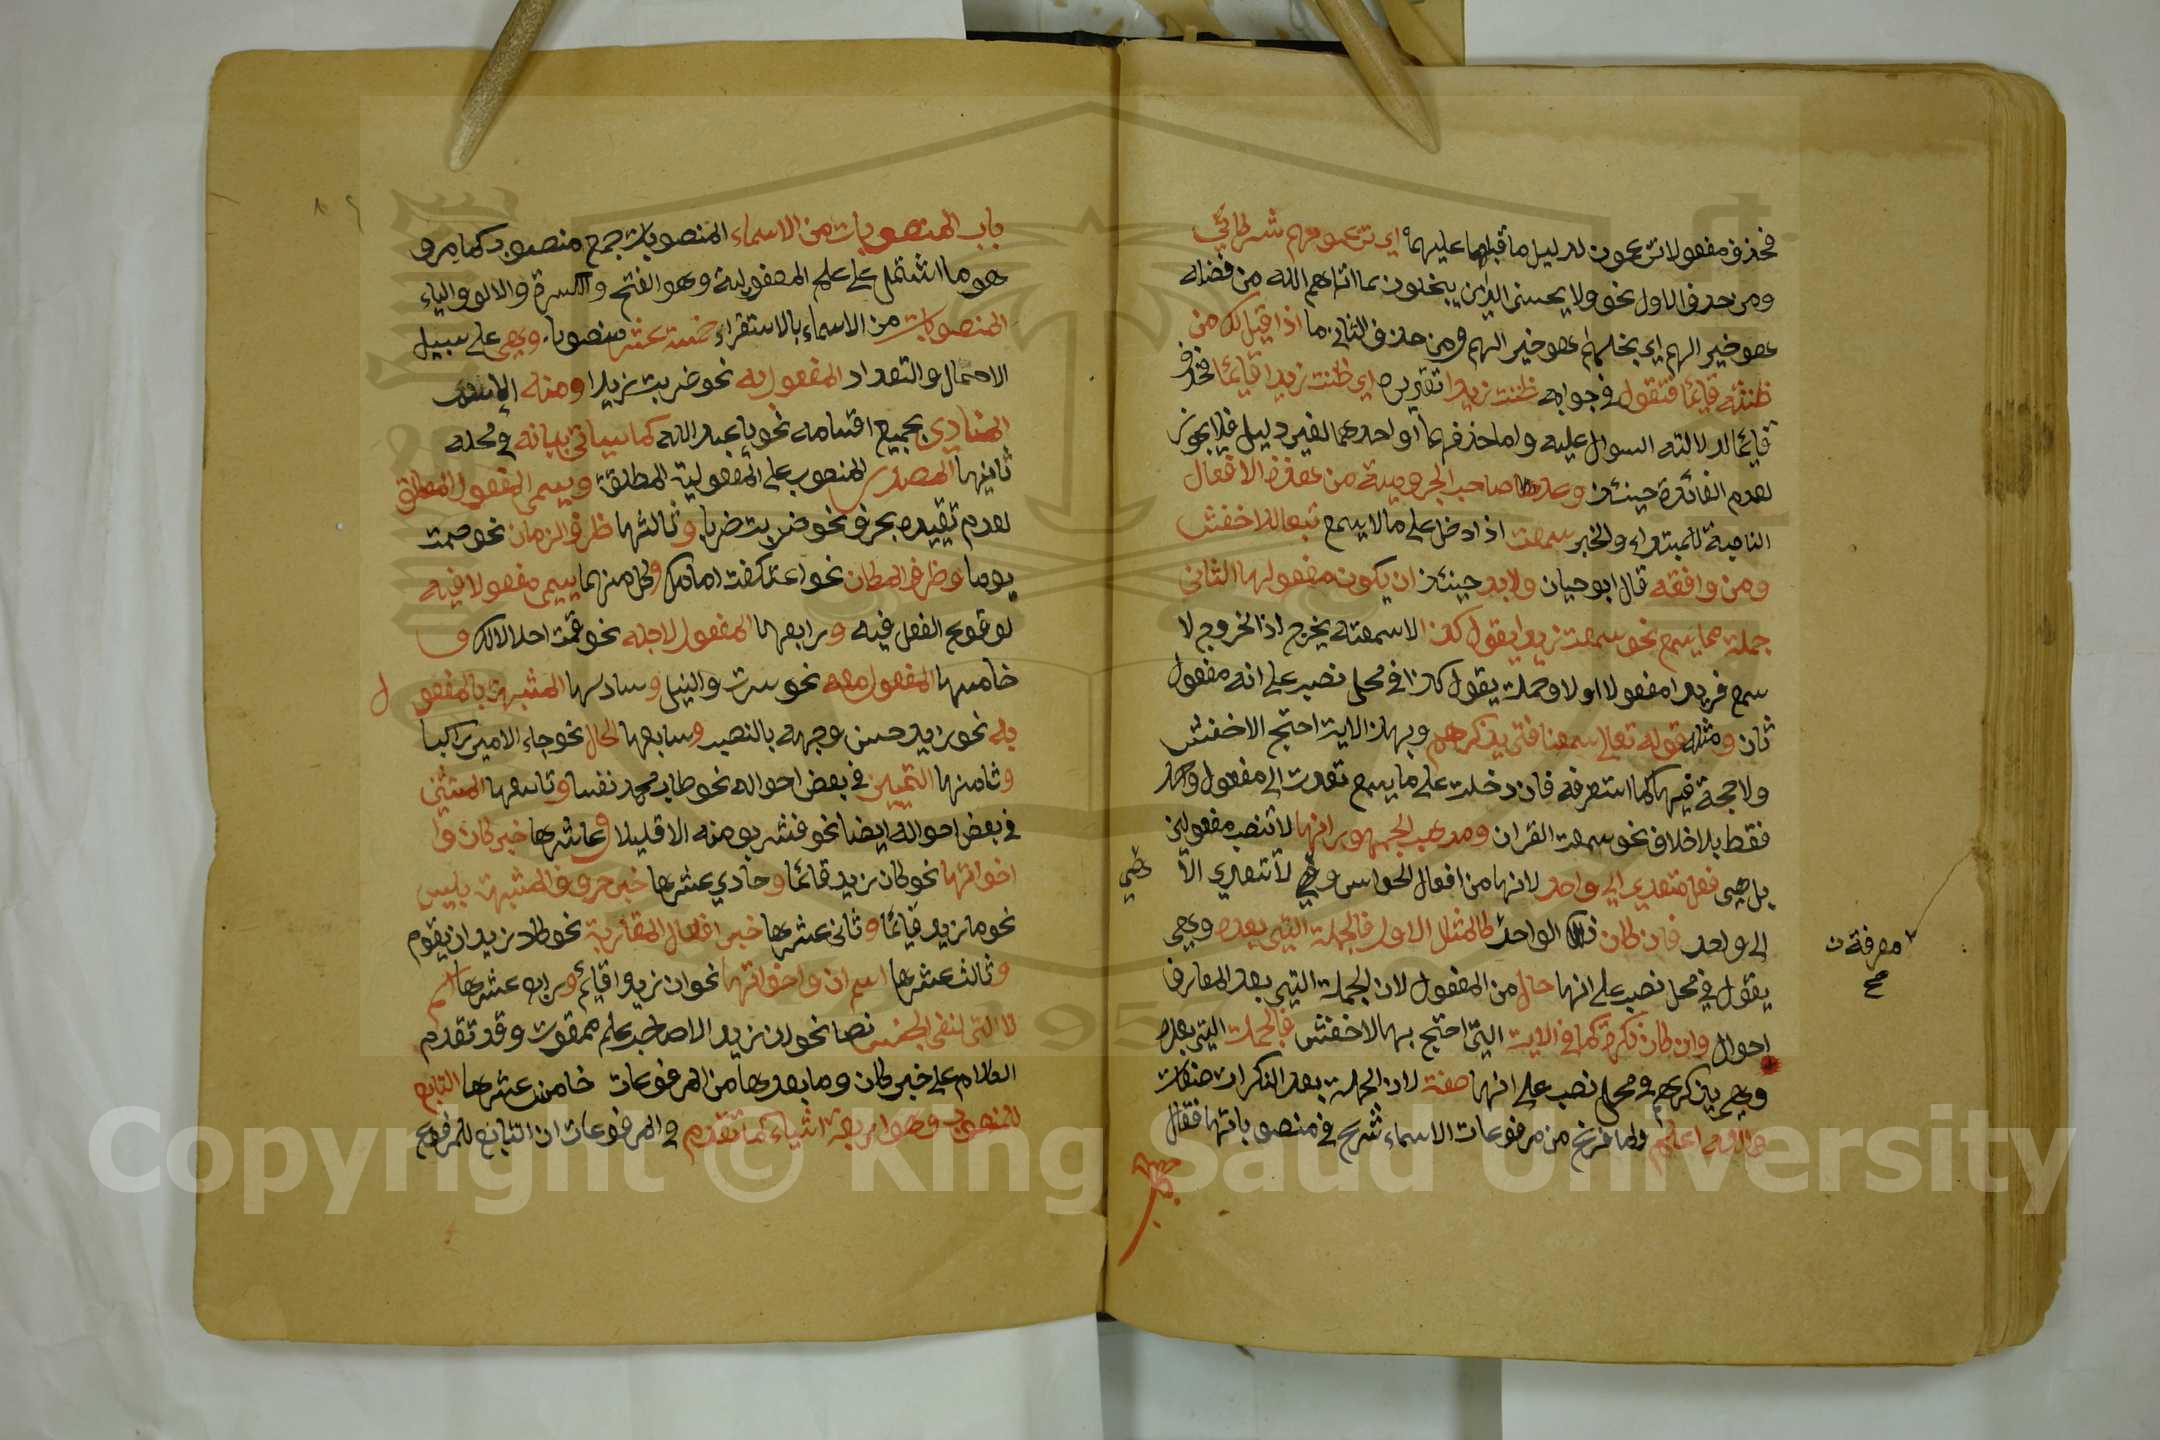 فحذف مفعولا تزعمون لدليل ما قبلهما عليهما اي تزعمونهم شركائي
ومن حذف الاول نحو ولا يحسبن الذين يبخلون بما اتاهم الله من فضله
هو خير الهم اي بخلهم هو خير الهم ومن حذف الثاني ما اذا قيل لك من
ظننته قائما فتقول في جوابه ظننت زيدا تقديره اي ظننت زيدا قائما فحذف
قائما لدلالته السوال عليه واما حذفهما او احدهما لغير دليل فلا يجوز
لعدم الفائدة حينئذ وعد صاحب الجرومية من هذه الافعال
الناصبة للمبتداء والخبر سمعت اذا دخل على مالا يسمع تبعا للاخفش
ومن وافقه قال ابو حيان ولا بد حينئذ ان يكون مفعولها الثاني
جملة مما يسمع نحو سمعت زيدا يقول كذا لا سمعته يخرج اذ الخروج لا
يسمع فزيدا مفعولا اولا وجملة يقول كذا في محل نصب على انه مفعول
ثان ومثله قوله تعالى سمعنا فتى يذكرهم وبهذا الاية احتج الاخفش
ولا حجة فيها كما ستعرفه فان دخلت على ما يسمع تعدت الى مفعول واحد
فقط بلا خلاف نحو سمعت القران ومذهب الجمهور انها لا تنصب مفعولين
بل هي فعل متعدي الى واحد لانها من افعال الحواس وهي لا تتعدي الا
الى واحد فان كان ذلك الواحد كالمثال الاول فالجملة التي بعده وهي
معرفة
صح
يقول في محل نصب على انها حال من المفعول لان الجملة التي بعد المعارف
احوال وان كان نكرة كما في الاية التي احتج بها الاخفش فالجملة التي بعده
وهي يذكرهم في محل نصب على انها صفة لان الجملة بعد النكرات صفات
والله اعلم ولما فرغ من مرفوعات الاسماء شرع في منصوباتها فقال
باب المنصوبات من الاسماء المنصوبات جمع منصوب كما مر و
هو ما اشتمل على علم المفعولية وهو الفتح والكسرة والالف والياء
المنصوبات من الاسماء بالاستقراء خمسة عشر منصوبا وهي على سبيل
الاجمال والتعداد المفعول به نحو ضربت زيدا ومنه الاسم
المنادي بجميع اقسامه نحو يا عبد الله كما سياتي بيانه في محله
ثانيها المصدر المنصوب على المفعولية المطلقة ويسمى المفعول المطلق
لعدم تقييده بحرف نحو ضربت ضربا وثالثها ظرف الزمان نحو صمت
يوما وظرف المكان نحو اعتكفت امامك وكل منهما يسمى مفعولا فيه
لوقوع الفعل فيه ورابعها المفعول لاجله نحو قمت اجلالا لك و
خامسها المفعول معه نحو سرت والنيل وسادسها المشبه بالمفعول
به نحو زيد حسن وجهه بالنصب وسابعها الحال نحو جاء الامير راكبا
وثامنها التمييز في بعض احواله نحو طاب محمد نفسا وتاسعها المستثنى
في بعض احواله ايضا نحو فشربو منه الا قليلا وعاشرها خبر كان وا
اخواتها نحو كان زيد قائما وحادي عشرها خبر حروف المشبهة بليس
نحو ما زيد قائما وثاني عشرها خبر افعال المقاربة نحو كاد زيد ان يقوم
وثالث عشرها اسم ان واخواتها نحو ان زيدا قائم ورابع عشرها اسم
لا التي لنفي الجنس نصا نحو ان زيد الا صاحب علم ممقوت وقد تقدم
الكلام على خبر كان وما بعدها من المرفوعات خامس عشرها التابع
للمنصوب وهو اربعة اشياء كما تقدم في المرفوعات ان التابع للمرفوع
Copyright © King Saud University